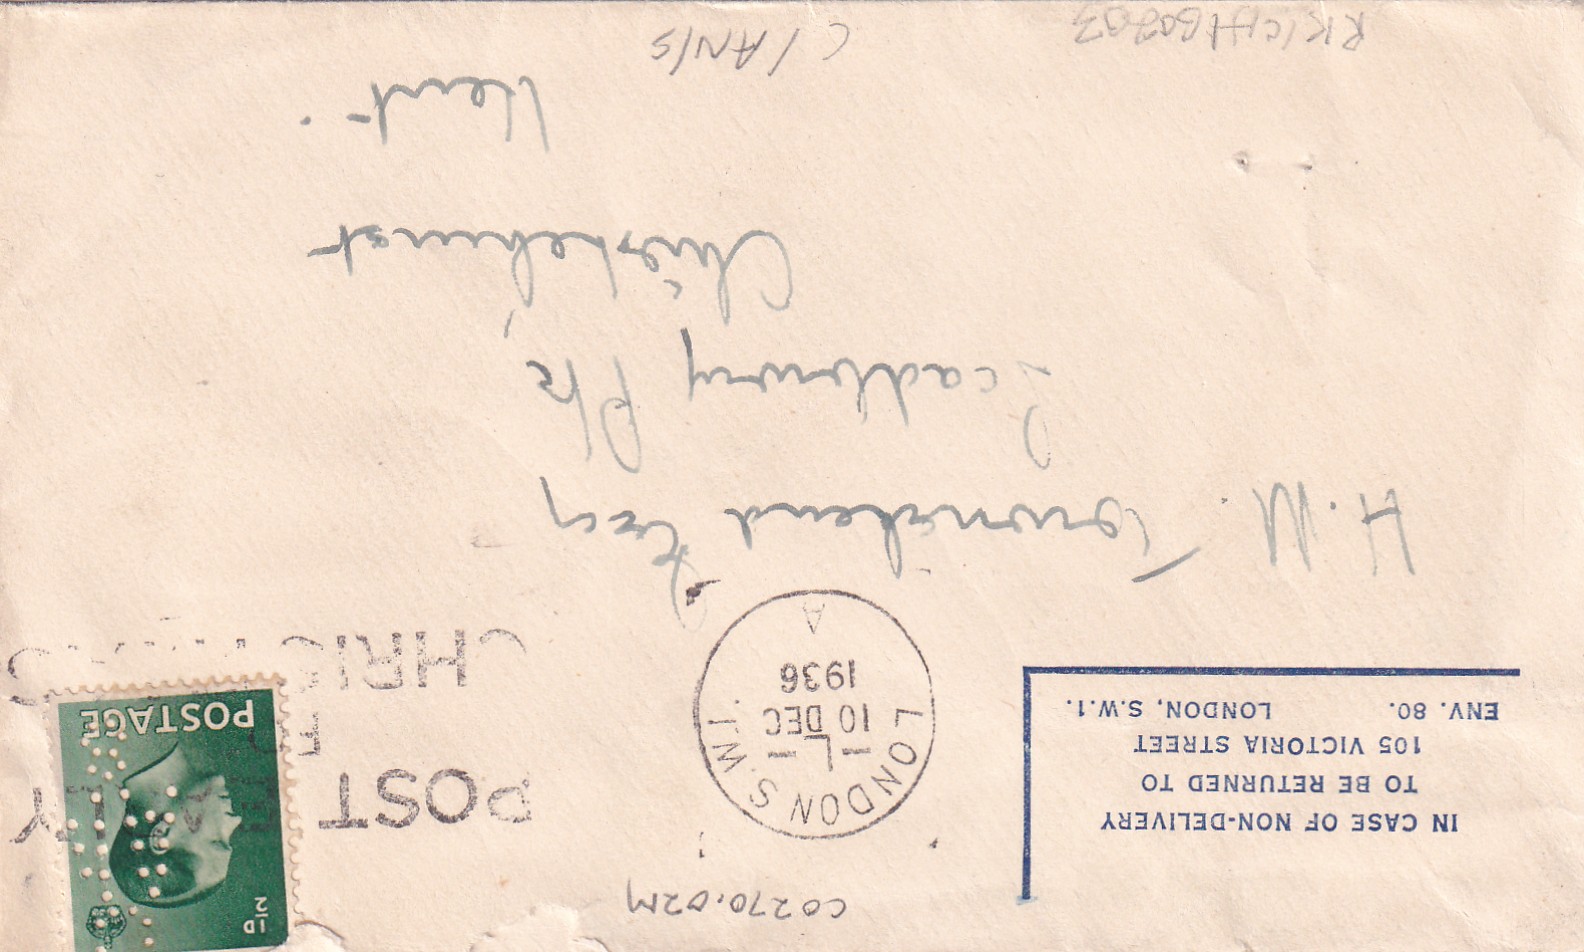 C0270.02M
IN CASE OF NON-DELIVERY
TO BE RETURNED TO
105 VICTORIA STREET
ENV. 80. LONDON, S.W.1.
LONDON S.W.1.
10 DEC
1936
A
POST
CHRIS
½D
POSTAGE
H. M. Townshend Esq
Scadbury Pk,
Chislehurst
Kent.
C/AN/S